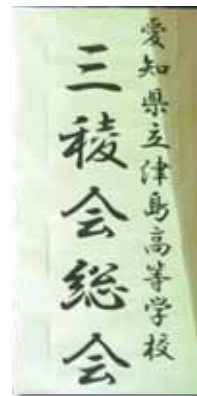 愛知県立津島高等学校
三稜会総会